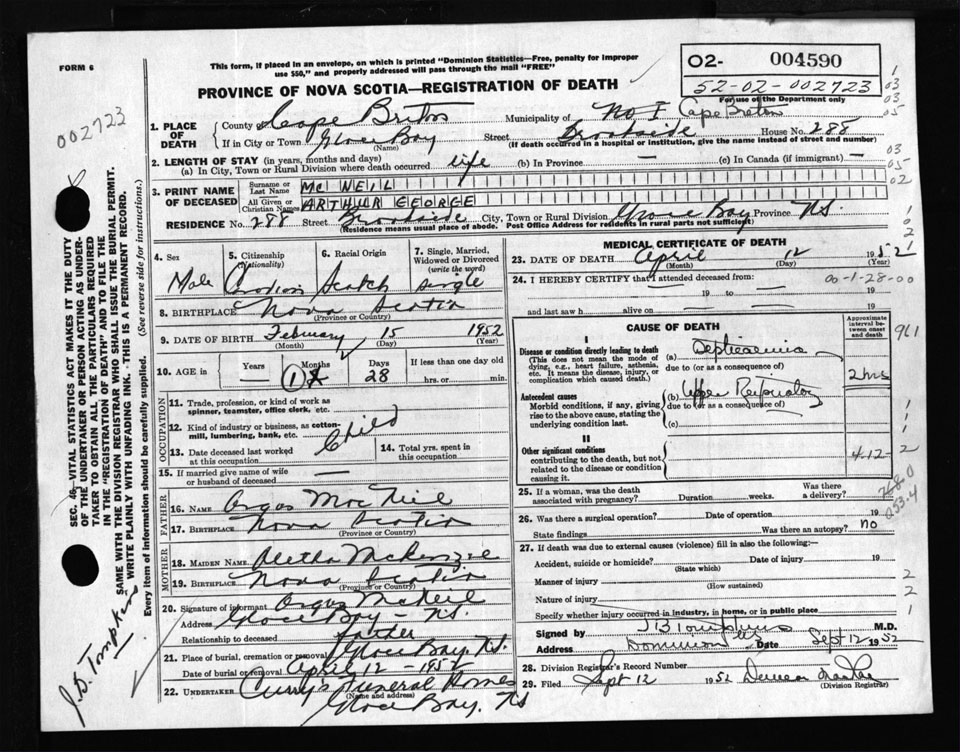 FORM 6
This form, if placed in an envelope, on which is printed "Dominion Statistics—Free, penalty for improper
use $50," and properly addressed will pass through the mail "FREE"
O2- 004590
52-02-002723
For use of the Department only
PROVINCE OF NOVA SCOTIA—REGISTRATION OF DEATH
002723
1. PLACE OF DEATH
County Cape Breton Municipality of No I Cape Breton
If in City or Town Glace Bay Street Brookside House No. 288
(Name) (If death occurred in a hospital or institution, give the name instead of street and number)
2. LENGTH OF STAY (in years, months and days)
(a) In City, Town or Rural Division where death occurred life (b) In Province — (c) In Canada (if immigrant) —
3. PRINT NAME OF DECEASED
Surname or Last Name MC NEIL
All Given or Christian Names ARTHUR GEORGE
RESIDENCE No. 288 Street Brookside City, Town or Rural Division Glace Bay Province N.S.
(Residence means usual place of abode. Post Office Address for residents in rural parts not sufficient)
4. Sex Male
5. Citizenship (Nationality) Canadian
6. Racial Origin Scotch
7. Single, Married, Widowed or Divorced (write the word) single
8. BIRTHPLACE Nova Scotia
(Province or Country)
9. DATE OF BIRTH February 15 1952
(Month) (Day) (Year)
10. AGE in Years — Months 1 Days 28 If less than one day old
hrs. or min.
OCCUPATION
11. Trade, profession, or kind of work as
spinner, teamster, office clerk, etc.
12. Kind of industry or business, as cotton-
mill, lumbering, bank, etc. Child
13. Date deceased last worked
at this occupation
14. Total yrs. spent in
this occupation
15. If married give name of wife
or husband of deceased —
FATHER
16. NAME Angus MacNeil
17. BIRTHPLACE Nova Scotia
(Province or Country)
MOTHER
18. MAIDEN NAME Aletha McKenzie
19. BIRTHPLACE Nova Scotia
(Province or Country)
20. Signature of informant Angus McNeil
Address Glace Bay N.S.
Relationship to deceased father
21. Place of burial, cremation or removal Glace Bay, N.S.
Date of burial or removal April 12 - 1952
22. UNDERTAKER Curry's Funeral Homes
(Name and address)
Glace Bay, NS
MEDICAL CERTIFICATE OF DEATH
23. DATE OF DEATH April 12 1952
(Month) (Day) (Year)
24. I HEREBY CERTIFY that I attended deceased from: 00-1-28-00
19 to 19
and last saw h alive on 19
CAUSE OF DEATH
Approximate interval between onset and death
I
Disease or condition directly leading to death
(This does not mean the mode of
dying, e.g., heart failure, asthenia,
etc. It means the disease, injury, or
complication which caused death.)
(a) Septicaemia
due to (or as a consequence of)
2 hrs
Antecedent causes
Morbid conditions, if any, giving
rise to the above cause, stating the
underlying condition last.
(b) Upper Respiratory
due to (or as a consequence of)
(c)
II
Other significant conditions
contributing to the death, but not
related to the disease or condition
causing it.
4-12-
25. If a woman, was the death
associated with pregnancy? Duration weeks. Was there a delivery?
26. Was there a surgical operation? Date of operation 19
State findings Was there an autopsy? no
27. If death was due to external causes (violence) fill in also the following:—
Accident, suicide or homicide? Date of injury 19
(State which)
Manner of injury
(How sustained)
Nature of injury
Specify whether injury occurred in industry, in home, or in public place
Signed by J B Tompkins M.D.
Address Dominion Date Sept 12 1952
28. Division Registrar's Record Number
29. Filed Sept 12 1952
(Division Registrar)
961
053.4
SEC. 46 VITAL STATISTICS ACT MAKES IT THE DUTY
OF THE UNDERTAKER OR PERSON ACTING AS UNDER-
TAKER TO OBTAIN ALL THE PARTICULARS REQUIRED
IN THE "REGISTRATION OF DEATH" AND TO FILE THE
SAME WITH THE DIVISION REGISTRAR WHO SHALL ISSUE THE BURIAL PERMIT.
WRITE PLAINLY WITH UNFADING INK. THIS IS A PERMANENT RECORD.
Every item of information should be carefully supplied. (See reverse side for instructions.)
J.D. Tompkins